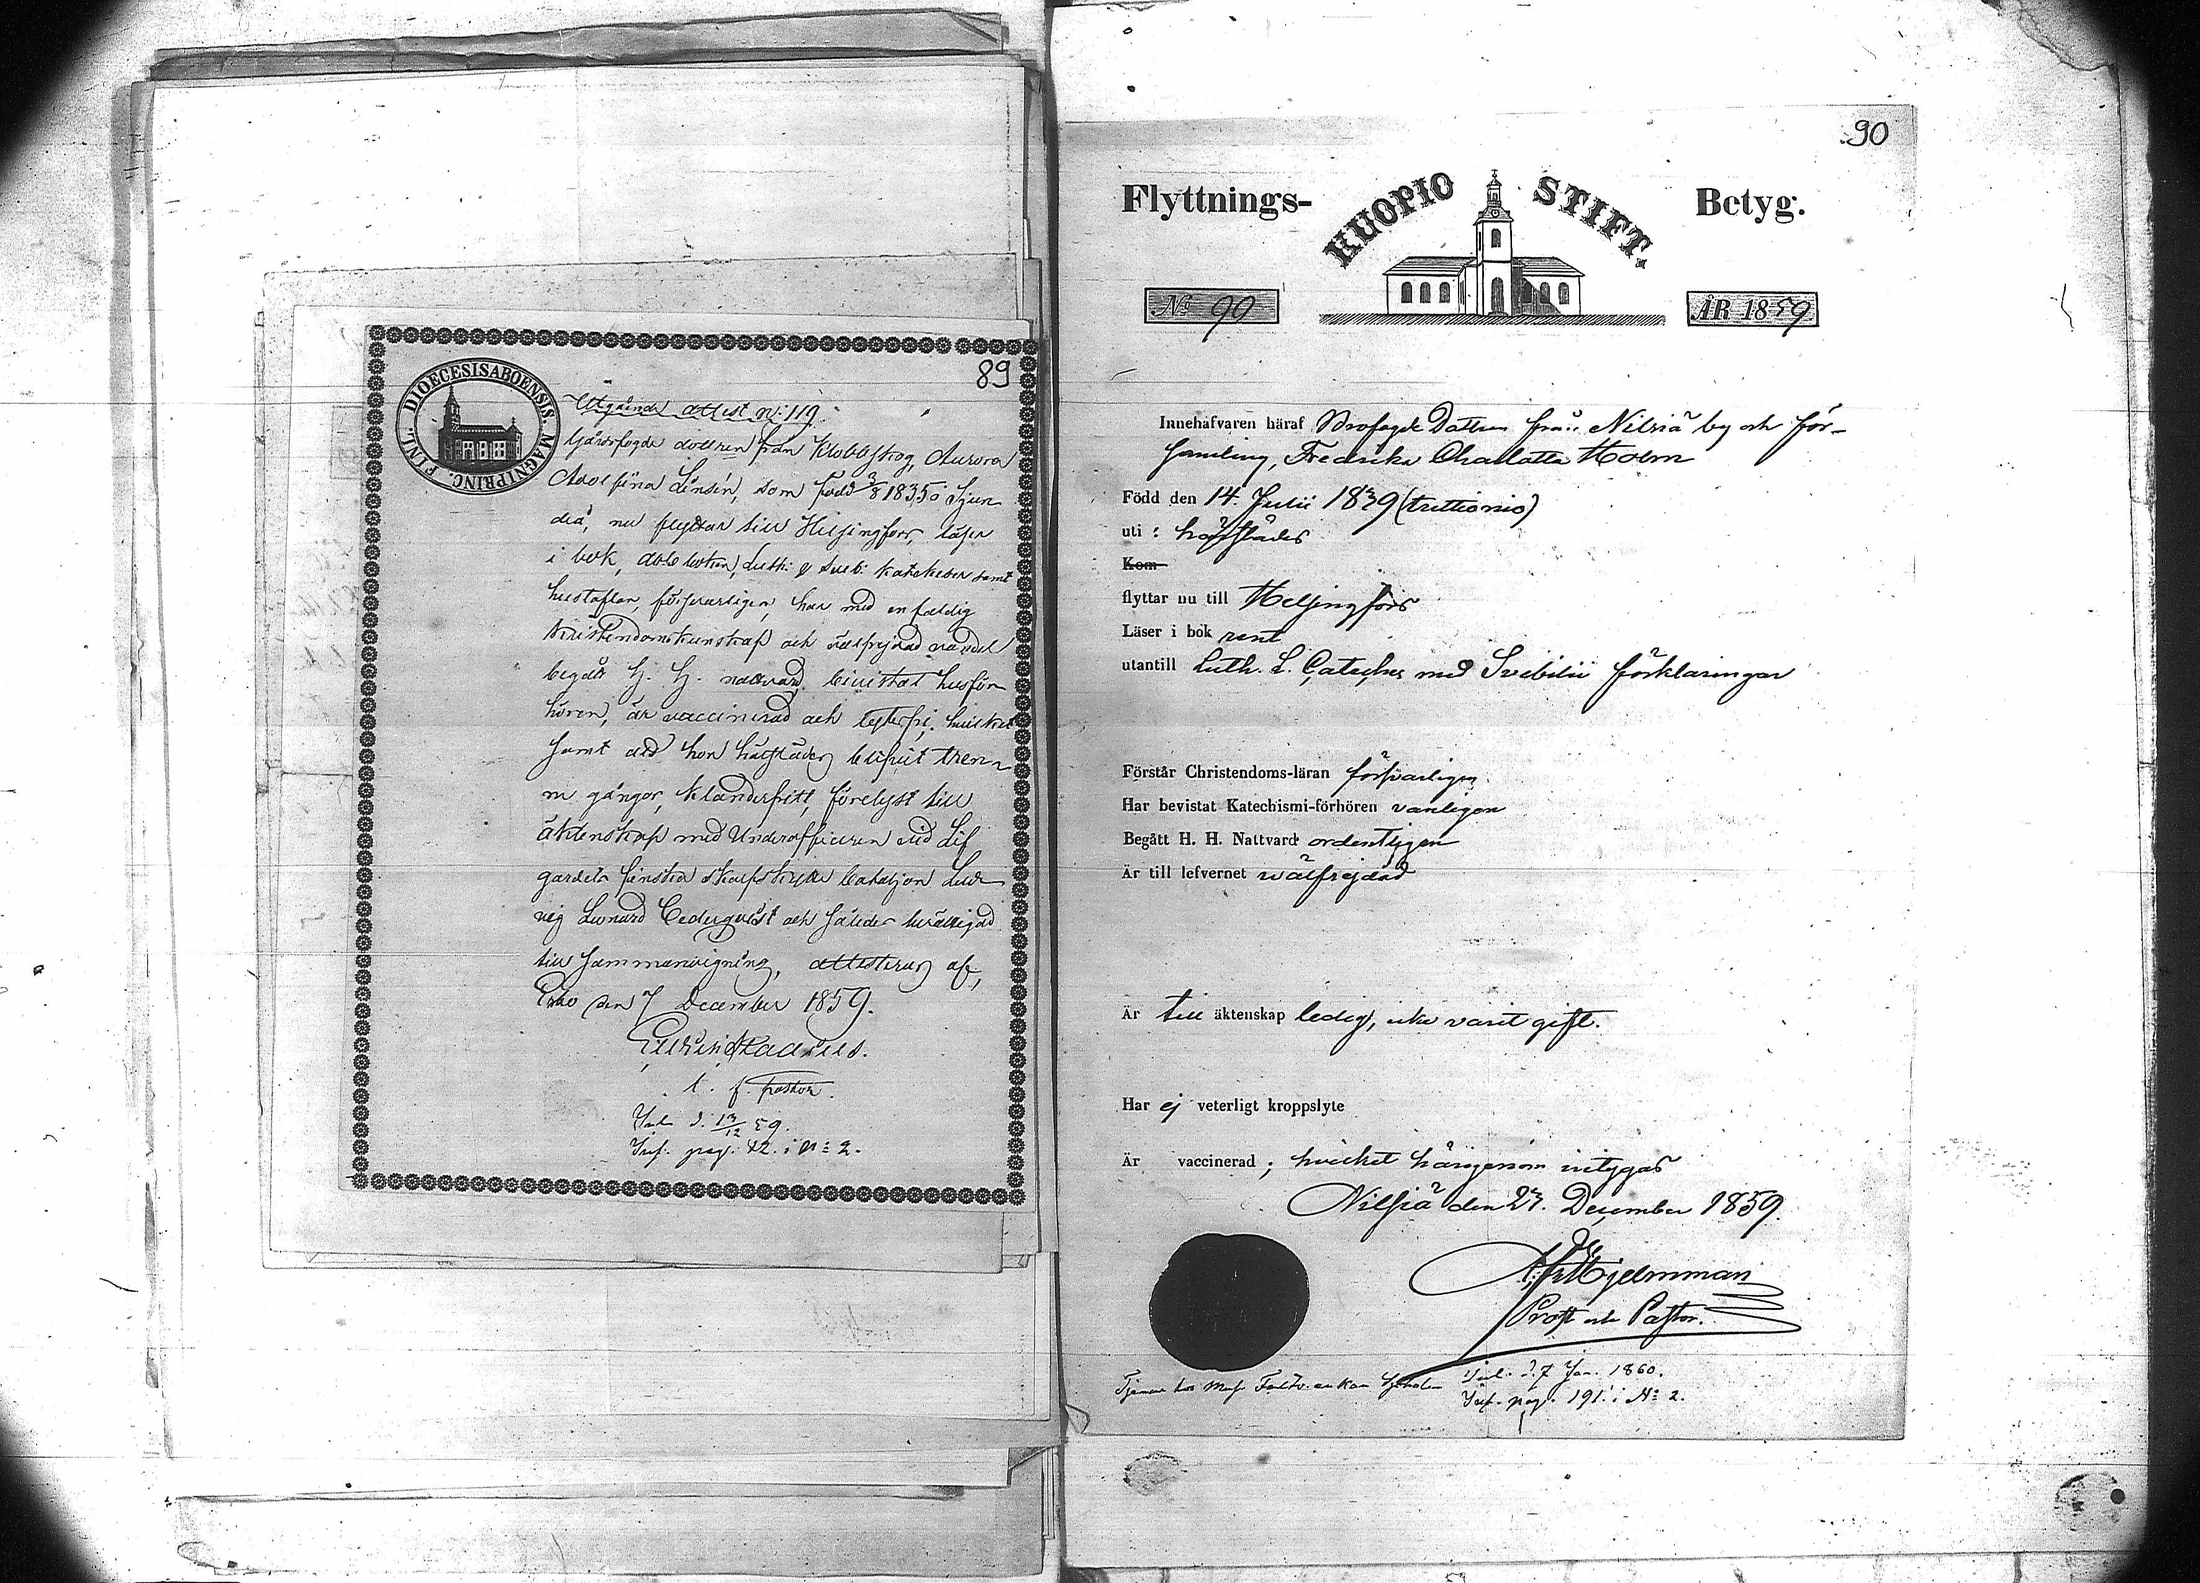 89
DIOECESIS ABOENSIS. MAGNI PRINC. FINL.
Utgående attest nr: 119.
dottren från Klobbskog, Aurora
Adolfina Linsén, som född 3/8 1835 i Sjun
deå, nu flyttar till Helsingfors, läser
i bok, abc boken, Luth: & Sveb: Katekeser samt
hustaflan, försvarligen, har med enfaldig
Kristendomskunskap och välfrejdad vandel
begått H. H. nattvard, bevistat husför
hören, är vaccinerad och lytesfri; hvilket
samt att hon härstädes blifvit tren-
ne gånger, klanderfritt, förelyst till
äktenskap med Underofficeren vid Lif
gardets finska skarpskytte bataljon Lud
vig Leonard Cederqvist och således berättigad
till sammanvigning, attesteras af,
Esbo den 7 December 1859.
t. f. pastor.
Inl. d. 13/12 59.
Inf. pag. 42. i N: 2.
90
Flyttnings- KUOPIO STIFT. Betyg.
No 99
ÅR 1859
Innehafvaren häraf Brofogde Dottren från Nilsiä by och för-
samling, Fredrika Charlotta Holm
Född den 14. Julii 1839 (trettionio)
uti: härstädes
Kom
flyttar nu till Helsingfors
Läser i bok rent
utantill Luth. L. Cateches med Svebilii förklaringar
Förstår Christendoms-läran försvarligen
Har bevistat Katechismi-förhören vanligen
Begått H. H. Nattvard ordentligen
Är till lefvernet välfrejdad
Är till äktenskap ledig, icke varit gift.
Har ej veterligt kroppslyte
Är vaccinerad; hvilket härigenom intygas
Nilsiä den 27. December 1859.
Hjelmman
Prost och Pastor.
Tjenar hos
Inl. d. 7 Jan. 1860.
Inf. pag. 191. i N: 2.